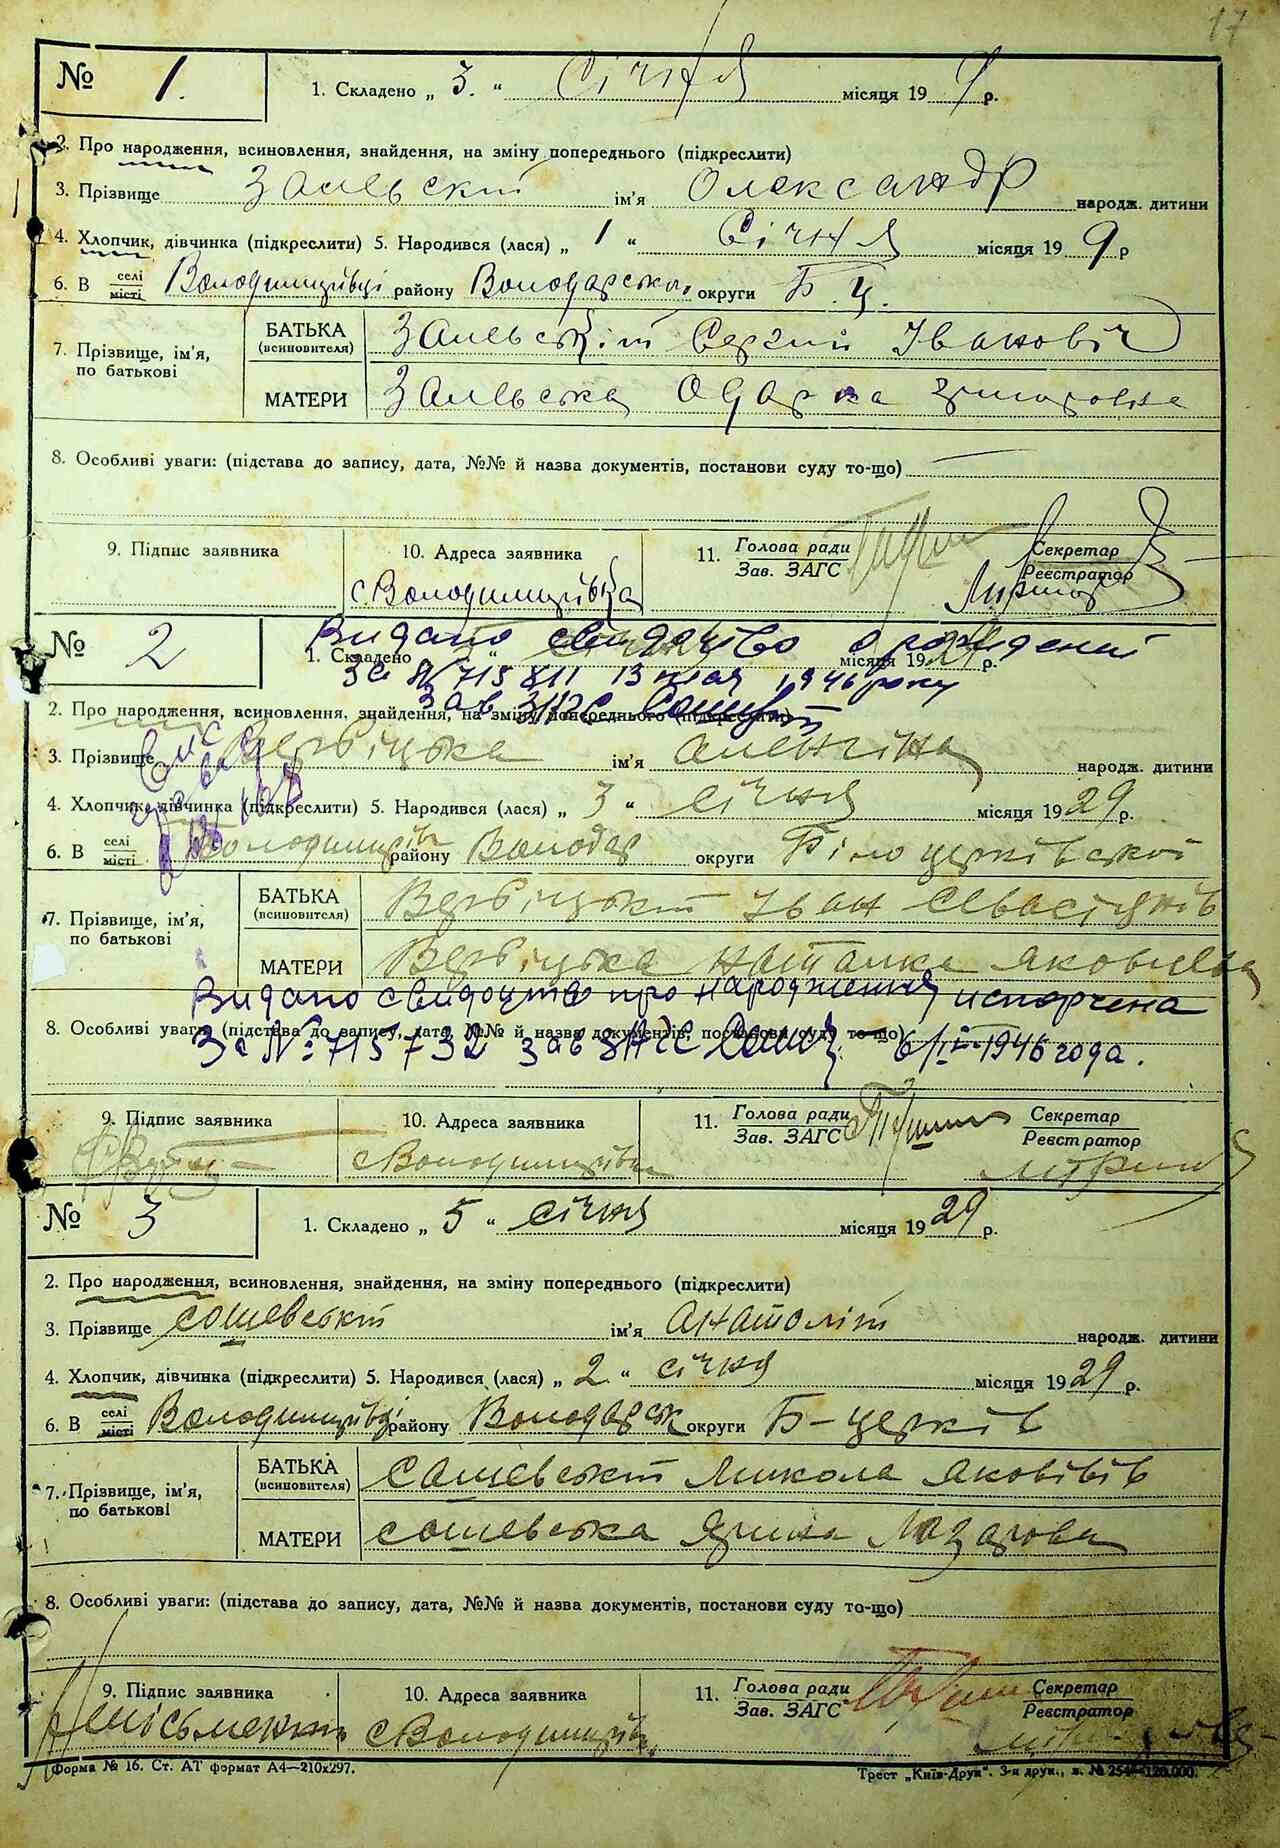 17
№ 1. 1. Складено „ 3. “ Січня місяця 19 9 р.
2. Про народження, всиновлення, знайдення, на зміну попереднього (підкреслити)
3. Прізвище ім'я Олександр народж. дитини
4. Хлопчик, дівчинка (підкреслити) 5. Народився (лася) „ 1 “ Січня місяця 19 9 р
6. В селі місті Володимирівці району Володарськ. округи Б. Ц.
7. Прізвище, ім'я, по батькові
БАТЬКА (всиновителя) Сергій Іванович
МАТЕРИ Одарка
8. Особливі уваги: (підстава до запису, дата, №№ й назва документів, постанови суду то-що)
9. Підпис заявника 10. Адреса заявника 11. Голова ради Зав. ЗАГС Секретар Реєстратор
с. Володимирівка
№ 2 1. Складено „ “ місяця 19 29 р.
Видано свидоцтво о рождении
За № 715811 13 мая 1946 року
Зав ЗАГС
2. Про народження, всиновлення, знайдення, на зміну попереднього (підкреслити)
3. Прізвище Вербіцька ім'я народж. дитини
4. Хлопчик, дівчинка (підкреслити) 5. Народився (лася) „ 3 “ січня місяця 19 29 р.
6. В селі місті Володимирів району Володар округи Білоцерківської
7. Прізвище, ім'я, по батькові
БАТЬКА (всиновителя) Вербіцький Іван Севастянів
МАТЕРИ Вербіцька Наталка Яковлева
Видано свидоцтво про народження испорчена
8. Особливі уваги: (підстава до запису, дата, №№ й назва документів, постанови суду то-що)
За № 715732 зав ЗАГС 6/IV-1946 года.
9. Підпис заявника 10. Адреса заявника 11. Голова ради Зав. ЗАГС Секретар Реєстратор
с Володимирівка
№ 3 1. Складено „ 5 “ січня місяця 19 29 р.
2. Про народження, всиновлення, знайдення, на зміну попереднього (підкреслити)
3. Прізвище Сошевський ім'я Анатолій народж. дитини
4. Хлопчик, дівчинка (підкреслити) 5. Народився (лася) „ 2 “ січня місяця 19 29 р.
6. В селі місті Володимирівці району Володарськ округи Б-церків
7. Прізвище, ім'я, по батькові
БАТЬКА (всиновителя) Сошевський Микола Яковів
МАТЕРИ Сошевська Ярина Лазарова
8. Особливі уваги: (підстава до запису, дата, №№ й назва документів, постанови суду то-що)
9. Підпис заявника 10. Адреса заявника 11. Голова ради Зав. ЗАГС Секретар Реєстратор
Неписьменний с Володимирівка
Форма № 16. Ст. АТ формат А4—210х297. Трест „Київ-Друк“. 3-я друк., з. № 254—120.000.